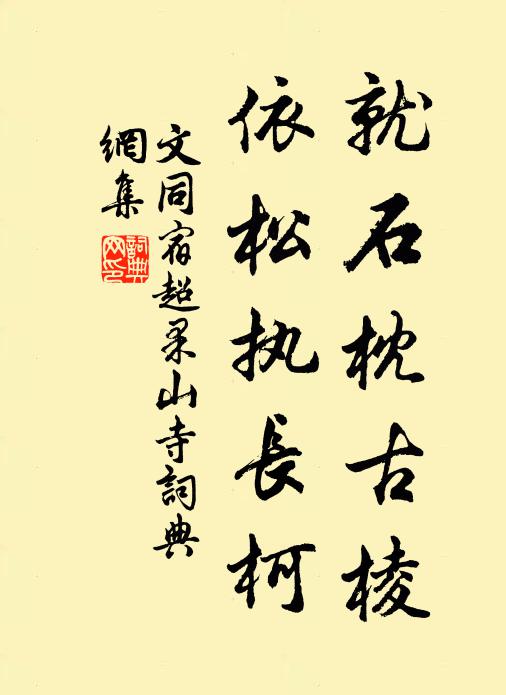 就石枕古棱
依松执長柯
文同宿超果山寺詞典
網集
詞典網印